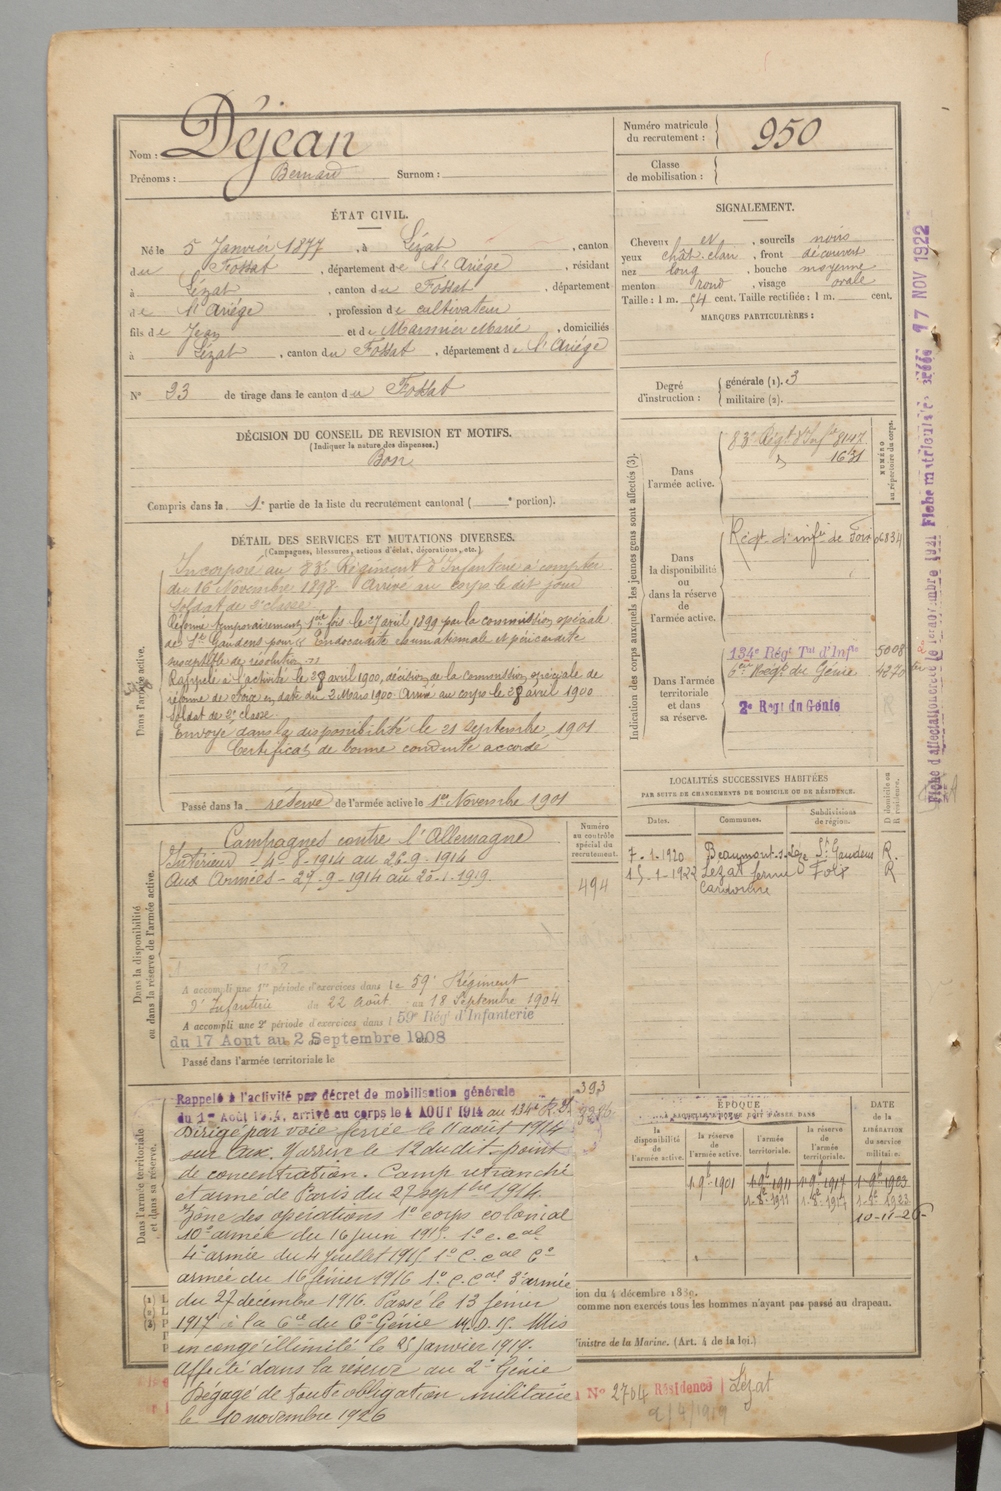 Nom : Déjean
Prénoms : Bernard Surnom :
Numéro matricule du recrutement : 950
Classe de mobilisation :
ÉTAT CIVIL.
Né le 5 Janvier 1877, à Lézat, canton
du Fossat, département de l'Ariége, résidant
à Lézat, canton du Fossat, département
de l'Ariége, profession de cultivateur
fils de Jean et de Marie, domiciliés
à Lézat, canton du Fossat, département de l'Ariége
N° 23 de tirage dans le canton du Fossat
SIGNALEMENT.
Cheveux et, sourcils noirs
yeux chât. clair, front découvert
nez long, bouche moyenne
menton rond, visage ovale
Taille : 1 m. 54 cent. Taille rectifiée : 1 m. cent.
MARQUES PARTICULIÈRES :
Degré d'instruction : générale (1). 3
militaire (2).
DÉCISION DU CONSEIL DE REVISION ET MOTIFS.
(Indiquer la nature des dispenses.)
Bon
Compris dans la 1e partie de la liste du recrutement cantonal ( e portion).
DÉTAIL DES SERVICES ET MUTATIONS DIVERSES.
(Campagnes, blessures, actions d'éclat, décorations, etc.)
Dans l'armée active.
Incorporé au 83e Régiment d'Infanterie à compter
du 16 Novembre 1898. Arrivé au corps le dit jour
soldat de 2e classe.
Réformé temporairement 1ère fois le 7 avril 1899 par la commission spéciale
de St Gaudens pour Endocardite rhumatismale et péricardite
susceptible de résolution
Rappelé à l'activité le 28 avril 1900, décision de la commission spéciale de
réforme de Foix en date du 2 Mars 1900. Arrivé au corps le 28 avril 1900
Soldat de 2e classe
Envoyé dans la disponibilité le 21 Septembre 1901
Certificat de bonne conduite accordé
Passé dans la réserve de l'armée active le 1er Novembre 1901
Indication des corps auxquels les jeunes gens sont affectés (3).
NUMÉRO au répertoire du corps.
Dans l'armée active.
83e Régt d'Infie 8147
16
Dans la disponibilité ou dans la réserve de l'armée active.
Régt d'infie de Foix 06834
Dans l'armée territoriale et dans sa réserve.
134e Régt Tal d'Infie 5008
6e Régt du Génie 4270
2e Regt du Génie
LOCALITÉS SUCCESSIVES HABITÉES
PAR SUITE DE CHANGEMENTS DE DOMICILE OU DE RÉSIDENCE.
Dates. Communes. Subdivisions de région. D domicile ou R résidence.
7-1-1920 Beaumont s. Lèze St Gaudens R.
15-1-1922 Lézat ferme Foix R
Dans la disponibilité ou dans la réserve de l'armée active.
Numéro au contrôle spécial du recrutement.
494
Campagnes contre l'Allemagne
Intérieur - 4-8-1914 au 26-9-1914
Aux Armées - 27-9-1914 au 25-1-1919
A accompli une 1re période d'exercices dans le 59e Régiment
d'Infanterie du 22 Août au 18 Septembre 1904
A accompli une 2e période d'exercices dans l 59e Régt d'Infanterie
du 17 Aout au 2 Septembre 1908
Passé dans l'armée territoriale le
Dans l'armée territoriale et dans sa réserve.
393
Rappelé à l'activité par décret de mobilisation générale
du 1er Août 1914, arrivé au corps le 4 AOUT 1914 au 134e R.I.
Dirigé par voie ferrée le 11 août 1914
sur Aux. Y arrive le 12 du dit point
de concentration. Camp retranché
et armé de Paris du 27 septbre 1914.
Zône des opérations 1er corps colonial
10e armée du 16 juin 1915. 1er c. cal
4e armée du 4 juillet 1915. 1er C. cal 6e
armée du 16 février 1916 1er C. cal 3e armée
du 27 décembre 1916. Passé le 13 février
1917 à la 6e cie du 6e Génie M.D.15. Mis
en congé illimité le 25 janvier 1919.
Affecté dans la réserve au 2e Génie
Dégagé de toute obligation militaire
le 10 novembre 1926
ÉPOQUE
la disponibilité de l'armée active. la réserve de l'armée active. l'armée territoriale. la réserve de l'armée territoriale. DATE de la LIBÉRATION du service militaire.
1-9e-1901 1-9e-1911 1-9e-1917 1-9e-1923
1-8e-1911
10-11-26
ion du 4 décembre 1889.
comme non exercés tous les hommes n'ayant pas passé au drapeau.
Ministre de la Marine. (Art. 4 de la loi.)
N° 2704 Résidence Lézat
2/4/1919
Fiche matriculaire créée 17 NOV 1922